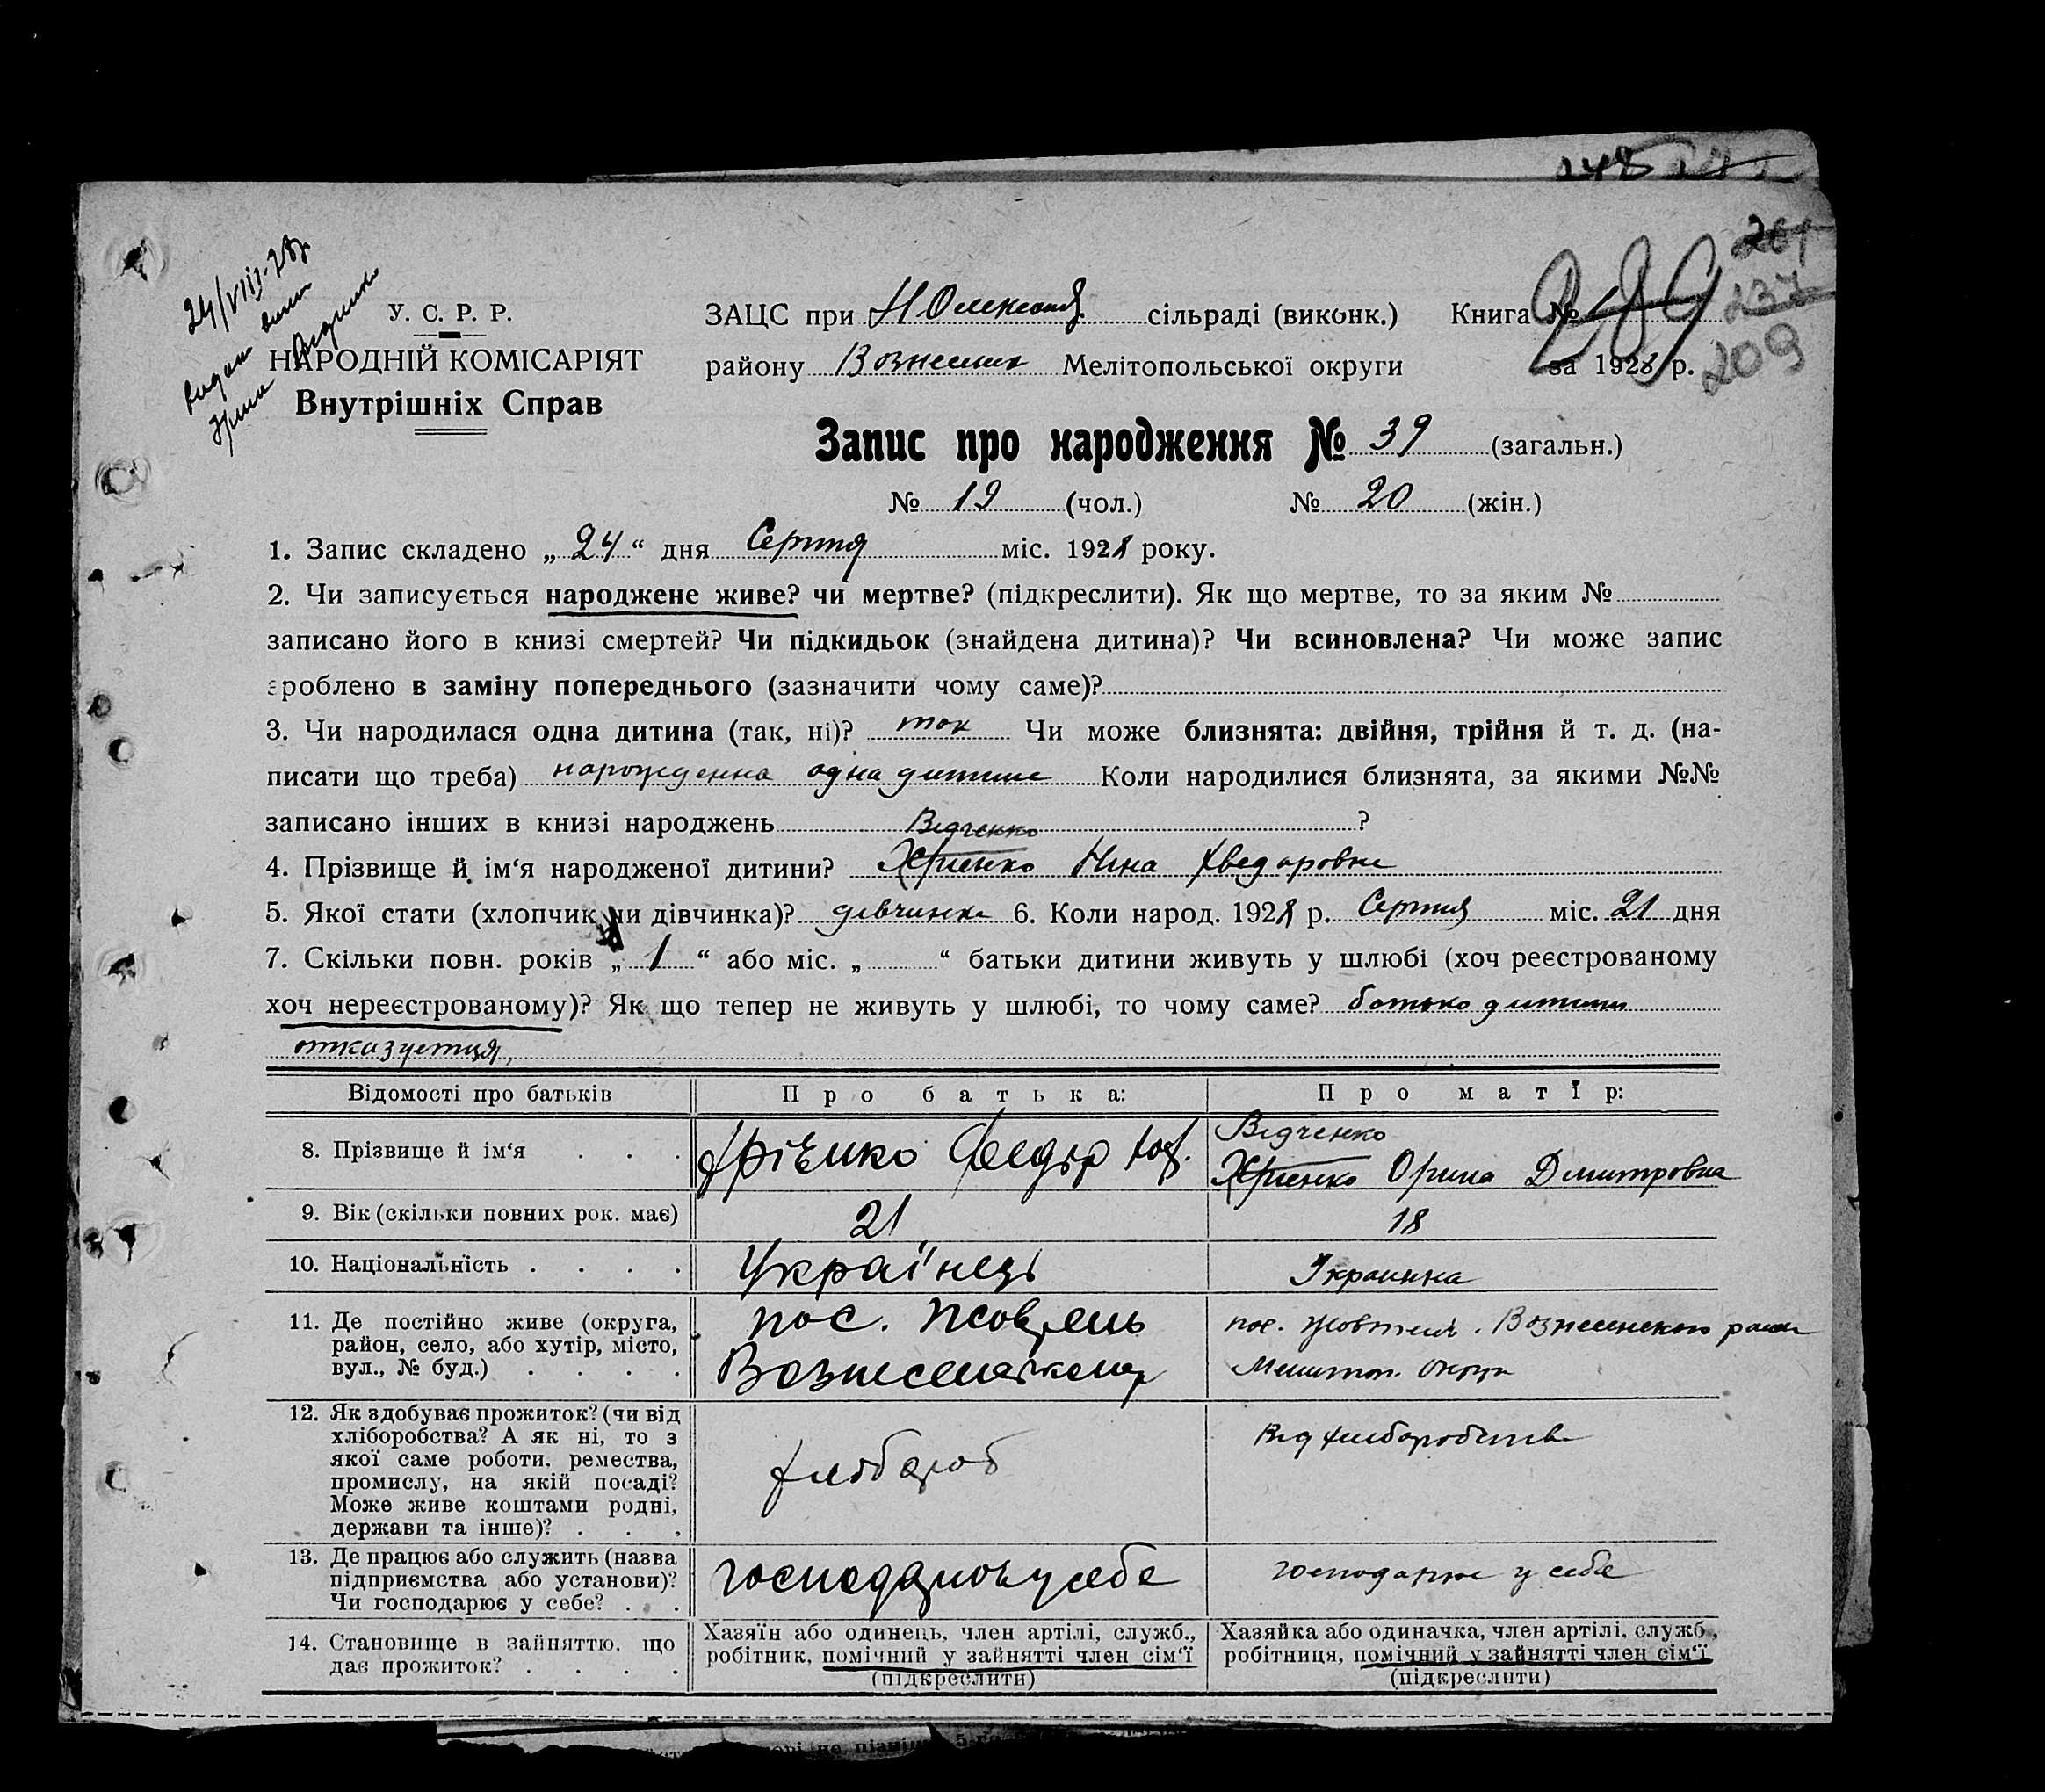 24/VIII-28р
видат вит
У. С. Р. Р.
НАРОДНІЙ КОМІСАРІЯТ
Внутрішніх Справ
ЗАЦС при Н Олексан сільраді (виконк.) Книга №
району Вознесенк Мелітопольської округи за 1928 р.
289
237
209
Запис про народження № 39 (загальн.)
№ 19 (чол.) № 20 (жін.)
1. Запис складено „24“ дня Серпня міс. 1928 року.
2. Чи записується народжене живе? чи мертве? (підкреслити). Як що мертве, то за яким №
записано його в книзі смертей? Чи підкидьок (знайдена дитина)? Чи всиновлена? Чи може запис
зроблено в заміну попереднього (зазначити чому саме)?
3. Чи народилася одна дитина (так, ні)? так Чи може близнята: двійня, трійня й т. д. (на-
писати що треба) народженна одна дитина Коли народилися близнята, за якими №№
записано інших в книзі народжень ?
Відченко
4. Прізвище й ім‘я народженої дитини? Хрієнко Нина Хведоровна
5. Якої стати (хлопчик чи дівчинка)? дівчинка 6. Коли народ. 1928 р. Серпня міс. 21 дня
7. Скільки повн. років „1“ або міс. „ “ батьки дитини живуть у шлюбі (хоч реєстрованому
хоч нереєстрованому)? Як що тепер не живуть у шлюбі, то чому саме? батько дитини
отказуетця,
Відомості про батьків Про батька: Про матір:
8. Прізвище й ім‘я ХріЄнко Федір
Відченко
Хрієнко Орина Дмитровна
9. Вік (скільки повних рок. має) 21 18
10. Національність Украінець Украинка
11. Де постійно живе (округа,
район, село, або хутір, місто,
вул., № буд.)
пос. Жовтень
Вознесенському
пос. Жовтень. Вознесенского раен
Мелитоп. Округи
12. Як здобуває прожиток? (чи від
хліборобства? А як ні, то з
якої саме роботи, ремества,
промислу, на якій посаді?
Може живе коштами родні,
держави та інше)?
хлібороб
Від хліборобства
13. Де працює або служить (назва
підприємства або установи)?
Чи господарює у себе?
господарюь у себе
господарює у себе
14. Становище в зайняттю, що
дає прожиток?
Хазяїн або одинець, член артілі, служб.,
робітник, помічний у зайнятті член сім‘ї
(підкреслити)
Хазяйка або одиначка, член артілі, служб.,
робітниця, помічний у зайнятті член сім‘ї
(підкреслити)